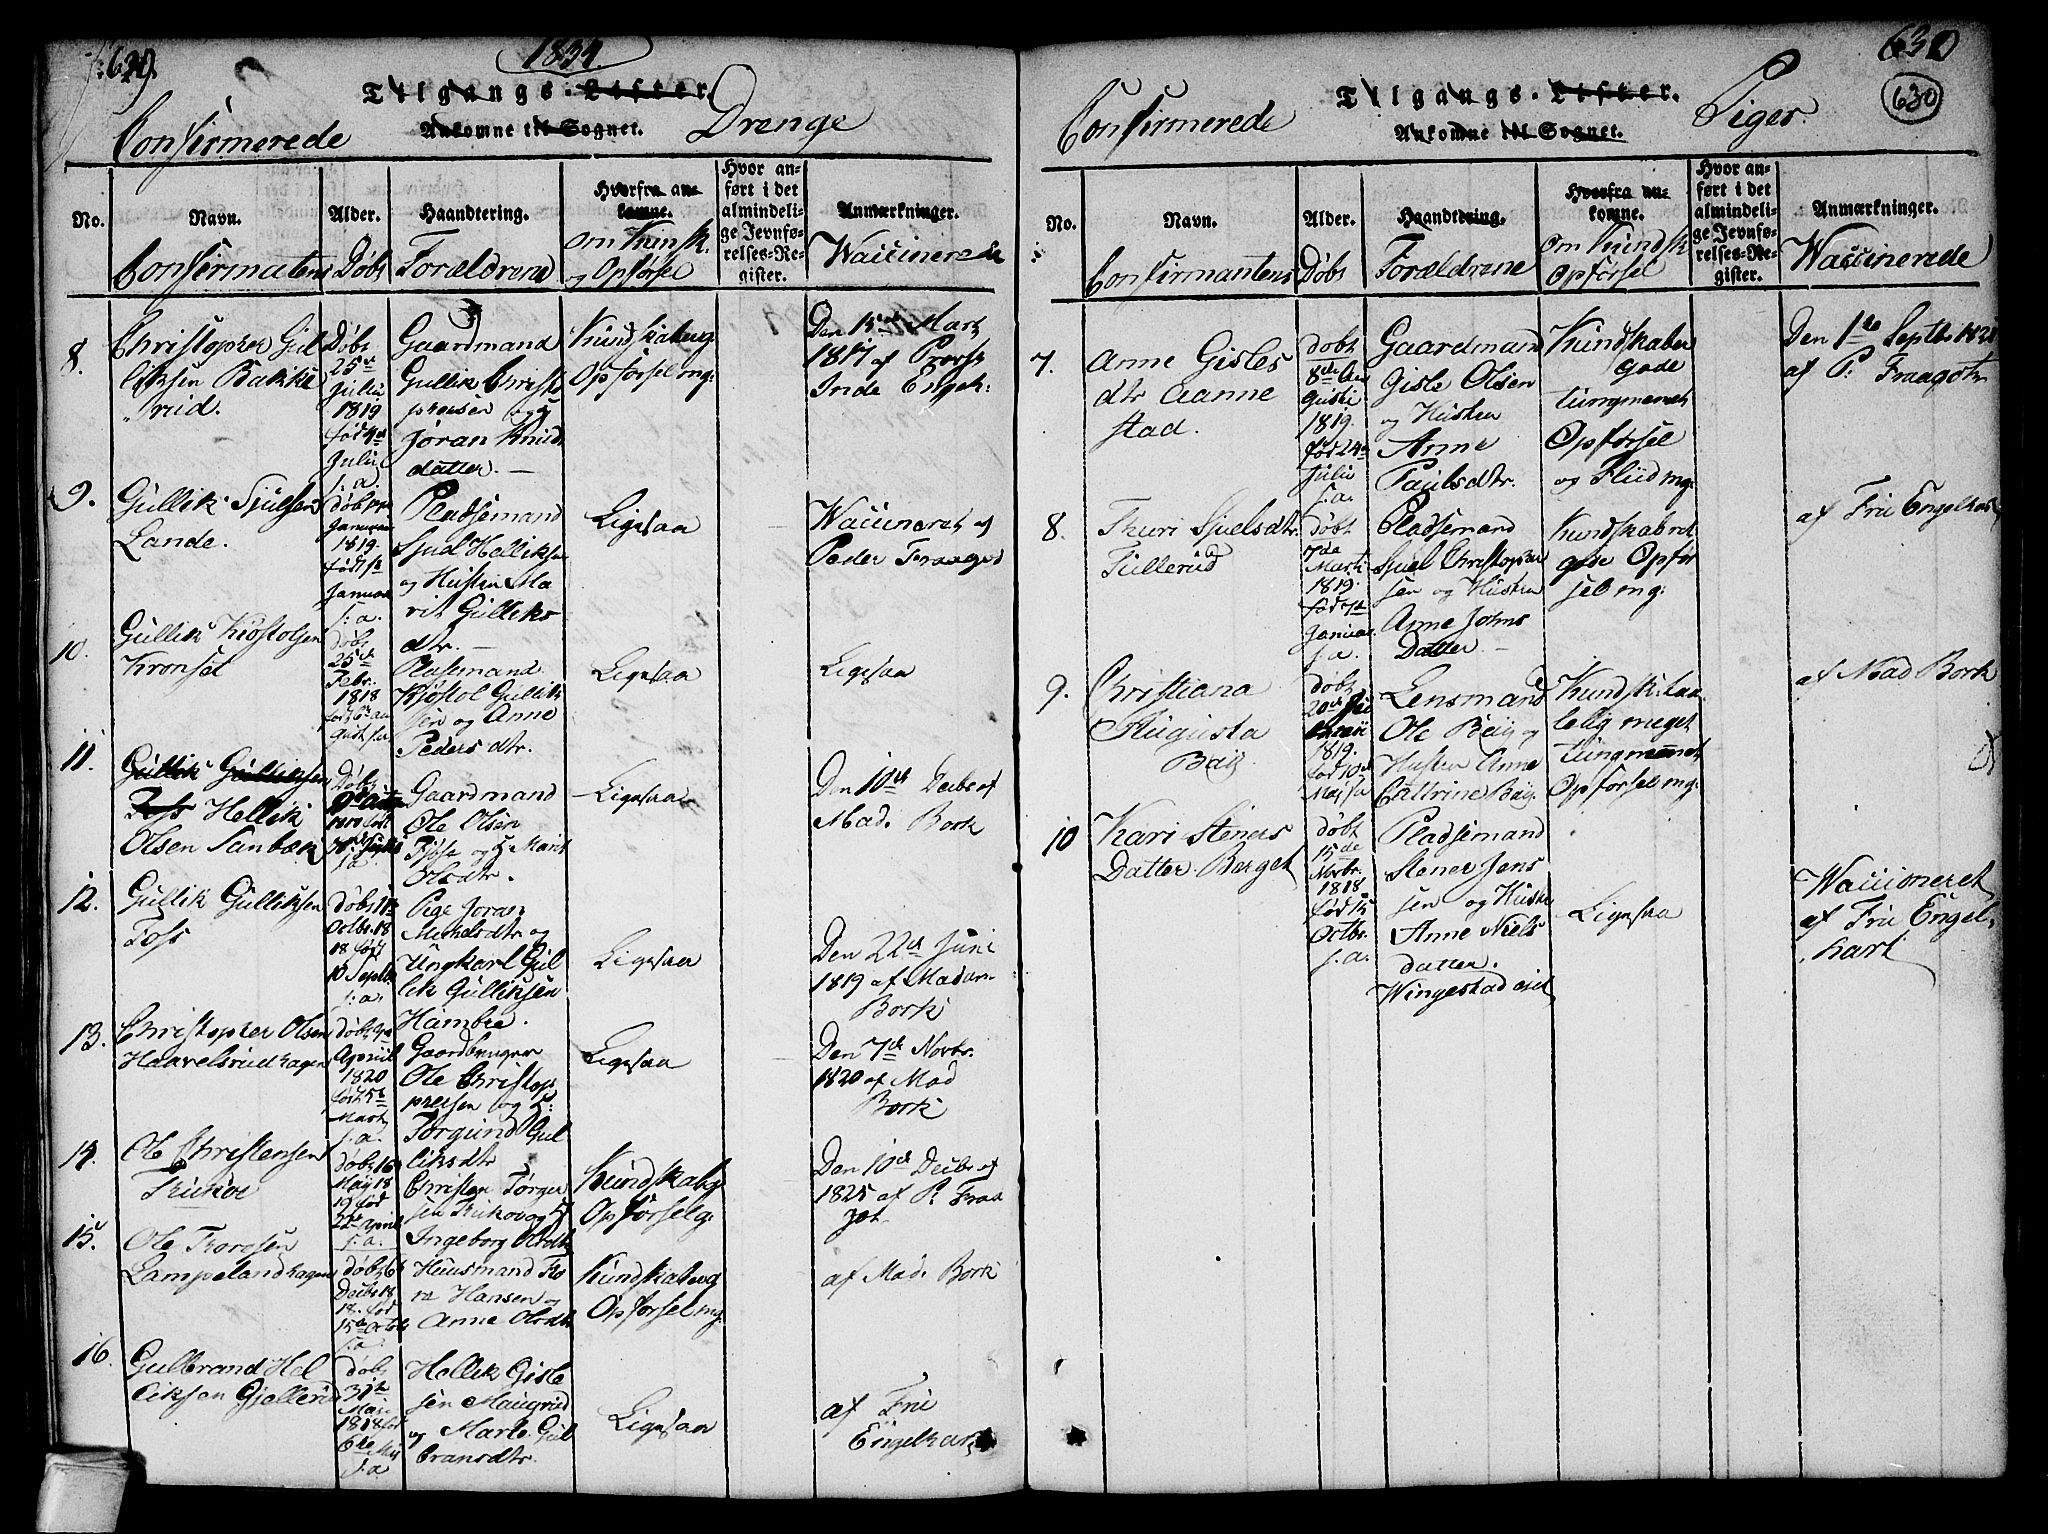 629.
1834.
Tilgangs-Lister.
Confirmerede
Ankomne til Sognet.
Drenge
No.
Navn.
Alder.
Haandtering.
Hvorfra an-
komne.
Hvor an-
ført i det
almindeli-
ge Jevnfø-
relses-Re-
gister.
Anmærkninger.
Confirmatens
Døbt
Forældrene
om Kundsk.
og Opførsel
Waccinerede
8.
Christopher Gul
liksen Bakke
rud.
Døbt
25de
Julii
1819
født 4de
Julii
s: a.
Gaardmand
Gullik Christ
phersen og
Jøran Knud
datter.
Kundskab og
Opførsel mg:
Den 15de Marts
1817 af Provst
inde Engelh:
9.
Gullik Sjulsen
Lande.
Januar
1819.
Januar
s: a.
Pladsemand
Sjul Helliksen
og Hustru Ma
rit Gulliks
dtr.
Ligesaa
Waccineret af
Peder Fraagod
10.
Gullik Kiøstolsen
Kronset
Døbt
25de
Febr.
1818
Pladsemand
Kjøstol Gullik
sen og Anne
Peders dtr.
Ligesaa
Ligesaa
11.
Gullik Gulliksen
Foss Hellik
Olsen Sanbæk
Døbt
s: a.
Gaardmand
Ole Olsen
og H Marit
Olsdtr.
Ligesaa
Den 10de Decbr af
Mad. Bork
12.
Gullik Gulliksen
Foss
Octbr. 18
18 født
10 Septbr
s: a.
Pige Joran
Mikelsdtr og
Ungkarl Gul
lik Gulliksen
Hambre.
Ligesaa
Den 22de Juni
1819 af Madam
Bork
13.
Christopher Olsen
Haavelsrudhagen
Døbt 9de
April
1820
født 5te
Marts
s: a.
Gaardbruger
Ole Christop
hersen og H:
Torgund Gul
liksdtr
Ligesaa
Den 7de Novbr.
1820 af Mad
Bork
14.
Ole Christensen
Døbt 16
May 18
19 født
22de April
s: a.
Christen Torger
sen og H
Ingeborg Olsdtr
Kundskab g
Opførsel g:
Den 10de Decbr af
1825 af P. Fraa
got
15.
Ole Thoresen
Lampelandhagen
Døbt 6te
Decbr 18
født
15de Octob
s: a.
Huusmand Tho
re Hansen og
Anne Olsdtr
Kundskab og
Opførsel mg:
af Mad. Bork
16.
Gulbrand Hel
liksen Gjellerud
Døbt
31te
Maii
1818 født
6te Maii
s: a
Hellik Gisle
sen
og Marte Gul
bransdtr.
Ligesaa
af Fru
Engelhart
630
630
Tilgangs-Lister.
Confirmerede
Ankomne til Sognet.
Piger.
No.
Navn.
Alder.
Haandtering.
Hvorfra an-
komne.
Hvor an-
ført i det
almindeli-
ge Jevnfø-
relses-Re-
gister.
Anmærkninger.
Confirmantens
Døbt
Forældrene
Om Kundsk
Opførsel
Waccinerede
7.
Anne Gisles
dtr Aanne
stad.
døbt
8de Au
gusti
1819.
født 24de
Julii
s: a.
Gaardmand
Gisle Olsen
og Hustru
Anne
Paulsdtr.
Kundskaber
gode
tungnemet
Opførsel
og Fliid mg:
Den 1ste Septbr. 1828
af P. Fraagot
8.
Thuri Sjulsdtr.
Fullerud
Døbt
7de
Marti
1819.
Januar.
s: a.
Pladsemand
Sjul Christopher
sen og Hustru
Anne Johns
Datter
Kundskab ret
gode Opfør
sel mg:
af Fru Engelhart
9.
Christiana
Augusta
døbt
1819.
født 10de
Maj sa
Lensmand
Ole og
Hustru Anne
Cathrine
Kundsk: taa
lelig meget
tungnemmet
Opførsel mg:
af Mad Bork
10
Kari Steners
Datter Berget
døbt
15de
Novbr.
1818
født 15
Octbr.
s: a.
Pladsemand
Stener Jens
sen og Hustru
Anne Niels
datter.
Wingestad eiet
Ligesaa
Waccineret
af Fru Engel-
hart